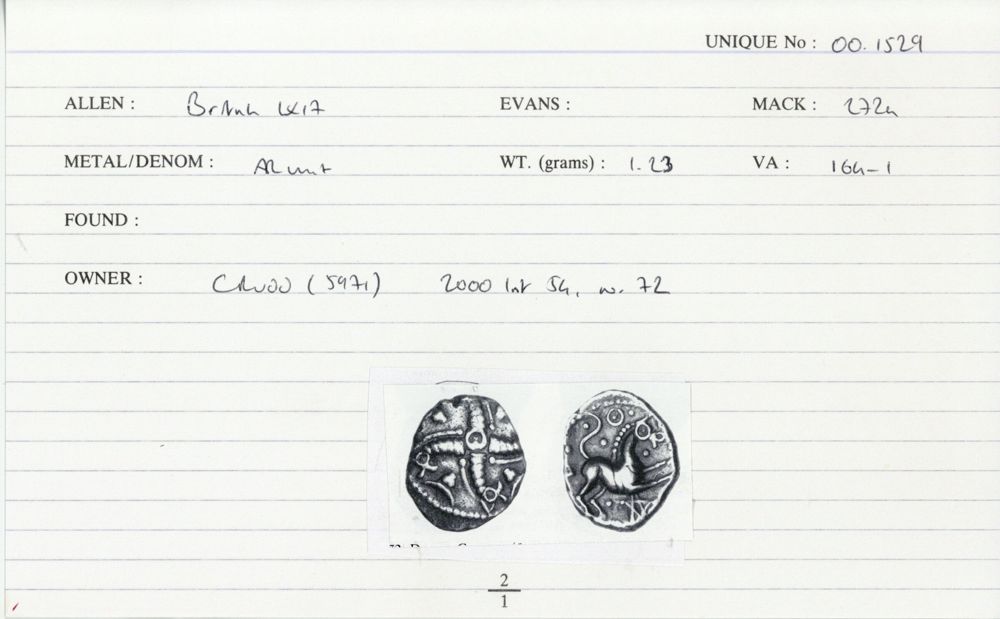 UNIQUE No : 00.1529
ALLEN : British LX17 EVANS : MACK : 272a
METAL/DENOM : AR unit WT. (grams) : 1.23 VA : 164-1
FOUND :
OWNER : (5971) 2000 54, 72
2
1